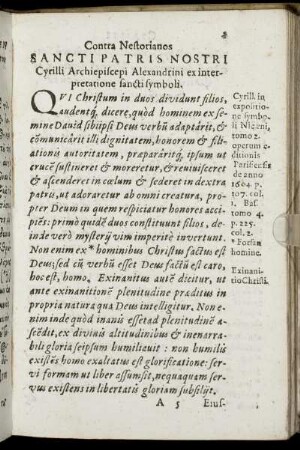 Contra Nestorianos
SANCTI PATRIS NOSTRI
Cyrilli Archiepiscopi Alexandrini ex inter-
pretatione sancti symboli.
QVI Christum in duos dividunt filios,
audentq́, dicere, quòd hominem ex se-
mine David sibi ipsi Deus verbũ adaptârit, &
cõmunicârit illi dignitatem, honorem & fili-
ationis autoritatem, præparâritq́, ipsum ut
crucẽ sustineret & moreretur, & revivisceret
& ascenderet in cœlum & sederet in dextra
patris, ut adoraretur ab omni creatura, pro-
pter Deum in quem respiciatur honores acci-
piẽs: primò quidẽ duos constituunt filios, de-
inde verò mysterij vim imperitè invertunt.
Non enim ex * hominibus Christus factus est
Deus; sed cũ verbũ esset Deus factũ est caro,
hoc est, homo. Exinanitus autẽ dicitur, ut
ante exinanitionẽ plenitudine præditus in
propria natura qua Deus intelligitur. Non e-
nim inde quòd inanis esset ad plenitudinẽ a-
scẽdit, ex divinis altitudinibus & inenarra-
bili gloria seipsum humiliauit : non humilis
existẽs homo exaltatus est glorificatione: ser-
vi formam ut liber assumsit, nequaquam ser-
vus existens in libertatis gloriam subsilijt.
A 5 Eius-
Cyrill. in
expositio-
ne symbo-
li Nicæni,
tomo 2.
operum e-
ditionis
Parisiensis
de anno
1604. p.
107. col.
1. Bas.
tomo 4.
p. 225.
col. 2.
* Forsan
homine.
Exinani-
tio Christi.